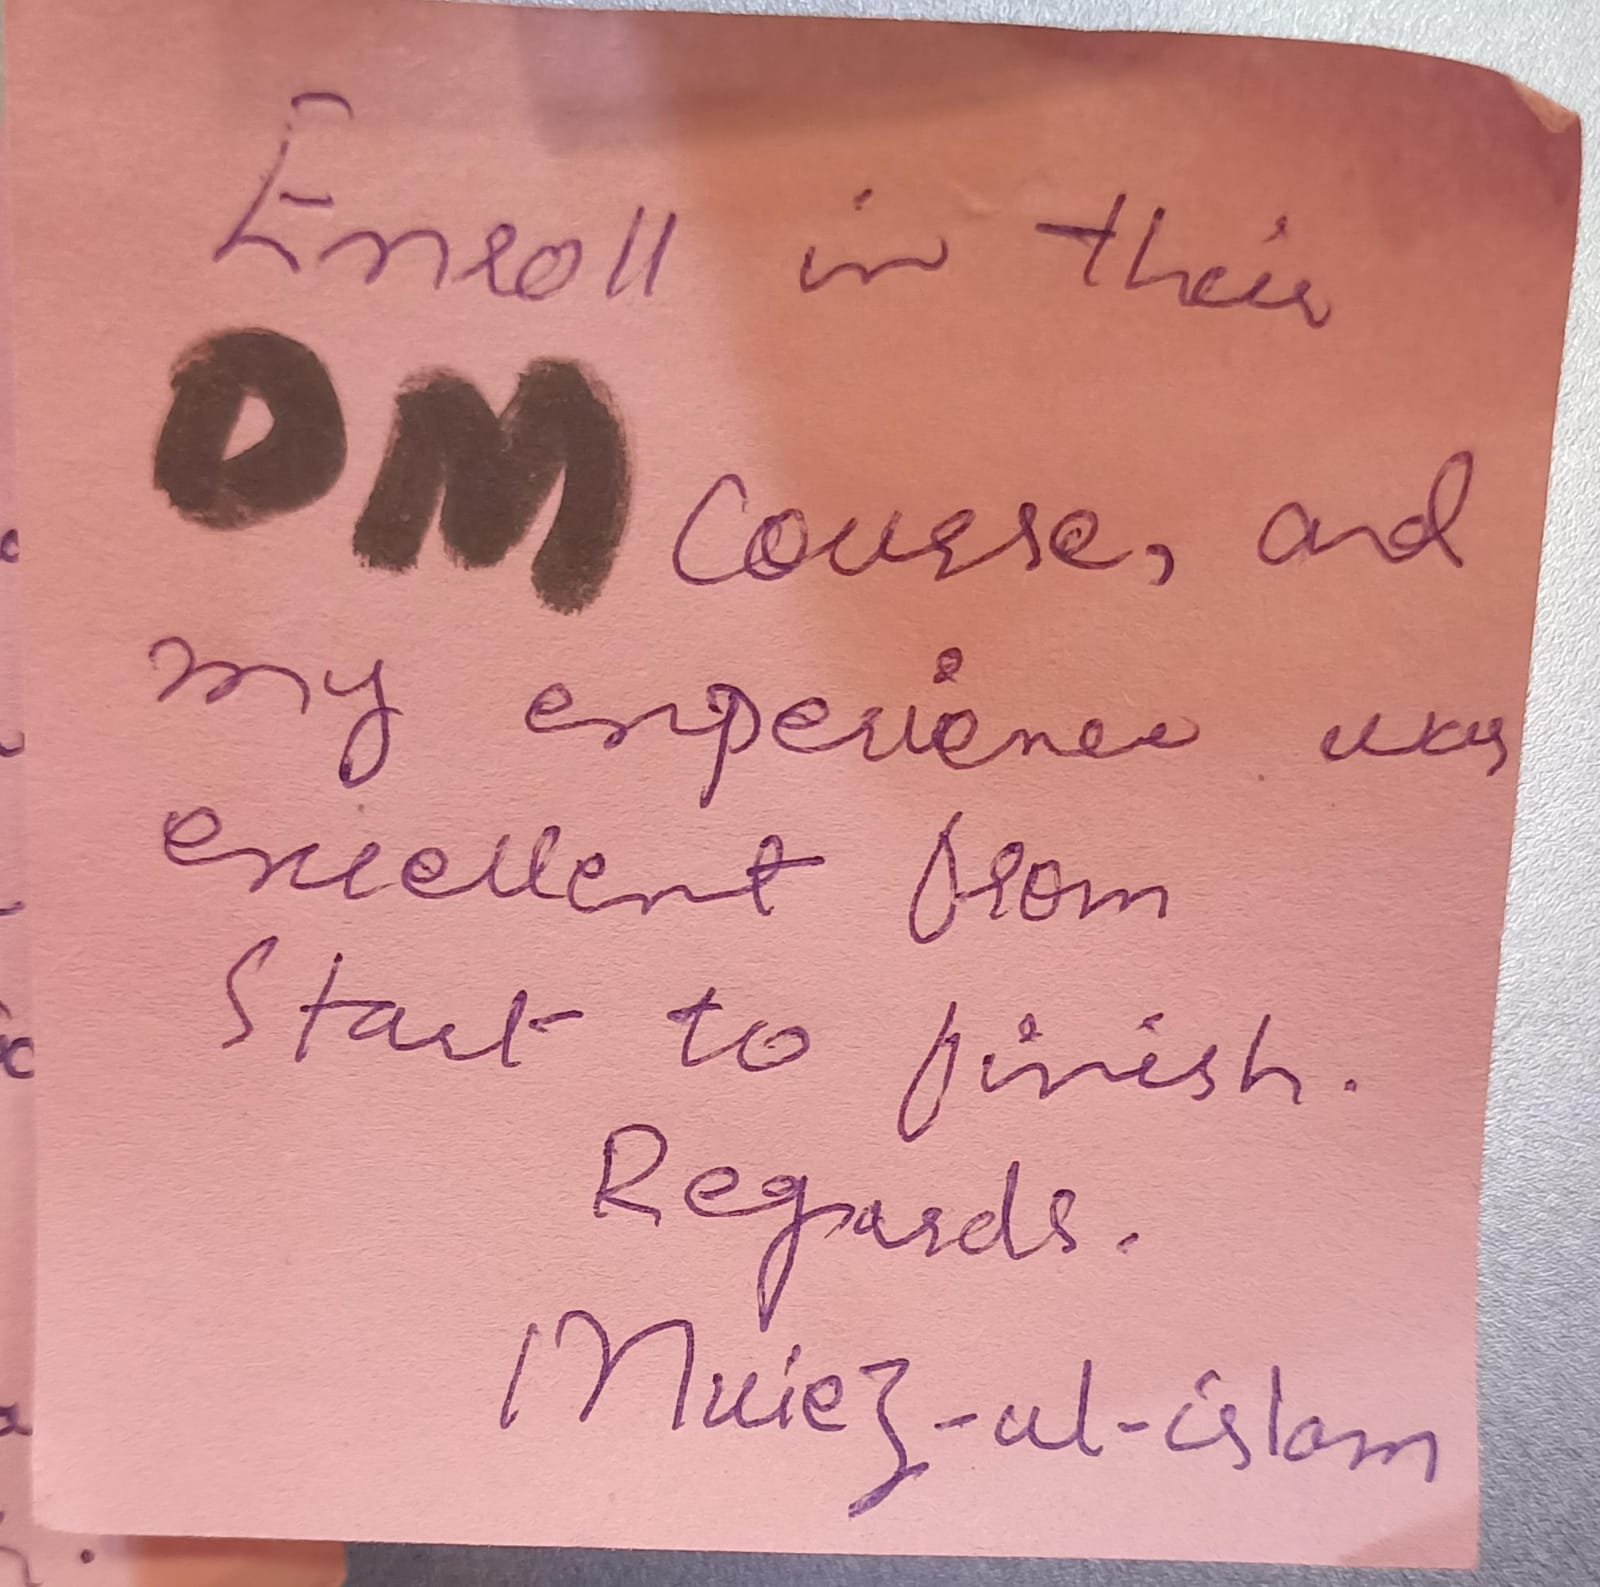 Enroll in their
DM Course, and
my experience was
excellent from
Start to finish.
Regards.
Muiez-ul-islam